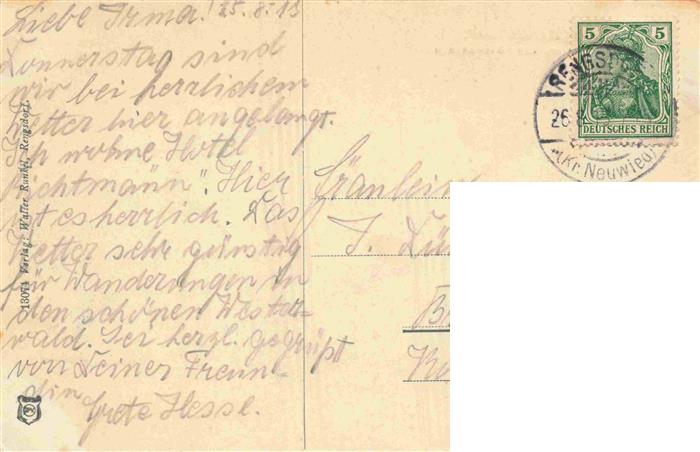 Liebe Irma! 25.8.13
Donnerstag sind
wir bei herrlichem
Wetter hier angelangt.
Ich wohne Hotel
"Hier
ist es herrlich. Das
Wetter sehr günstig
für Wanderungen in
den schönen Wester-
wald. Sei herzl. gegrüßt
von Deiner Freun-
din
Grete Hesse.
13074 Verlag: Walter Rengsdorf.
5 5
DEUTSCHES REICH
RENGSD
26.8
(Kr. Neuwied)
Fräulein
I.